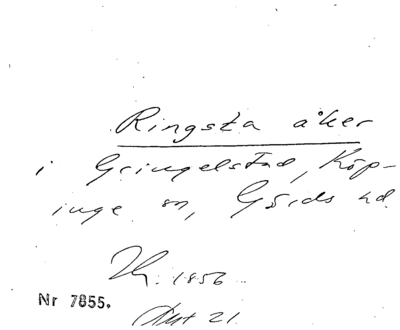 Ringsta åker
i Gringelstad, Köp-
inge sn, Gärds hd.
1856
Nr 7855.
21